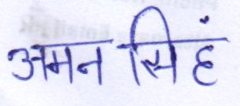 अमन सिहं